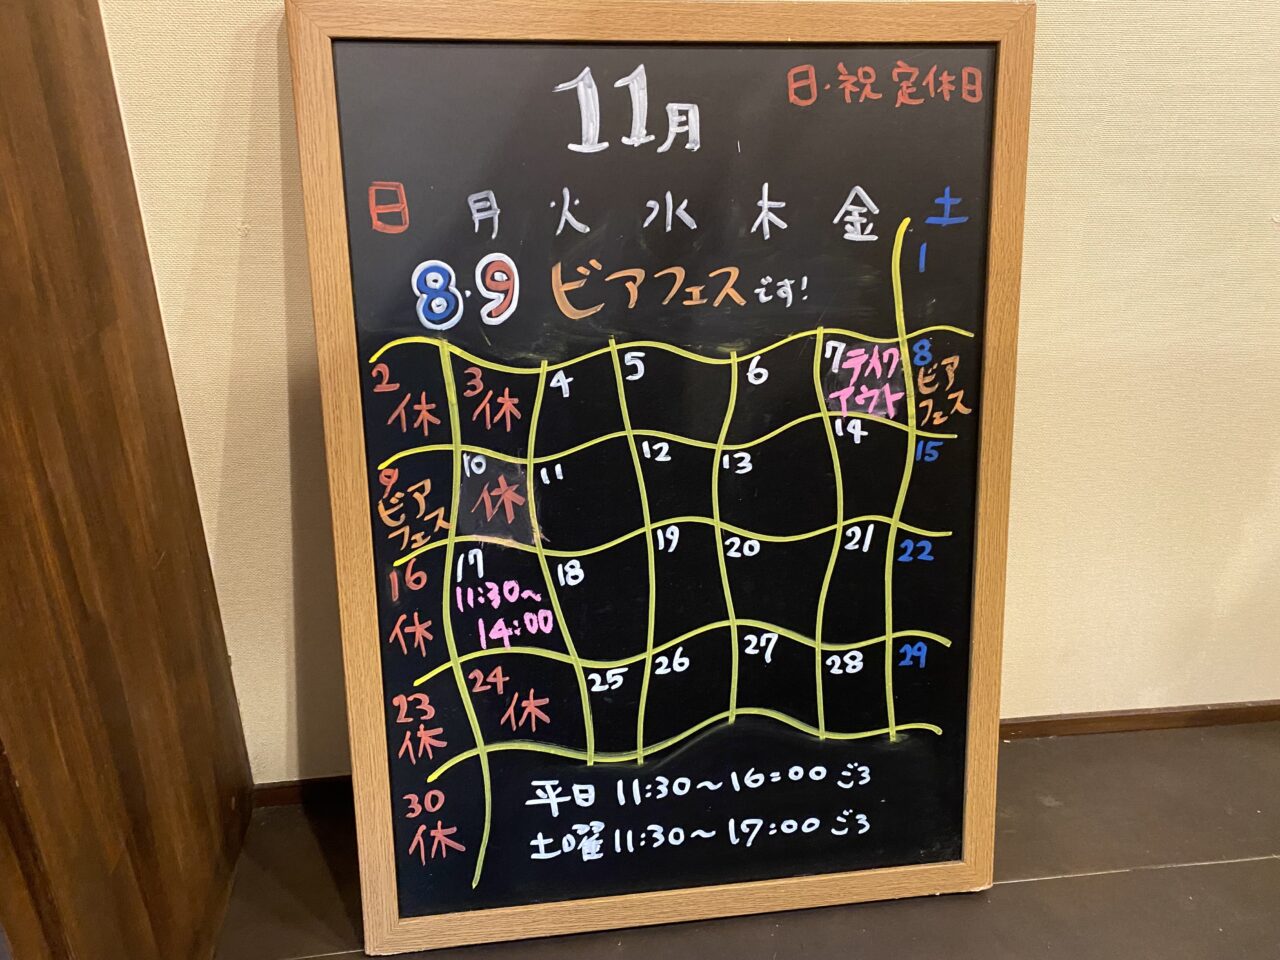 11月
日・祝 定休日
日 月 火 水 木 金 土
1
8・9 ビアフェスです!
2 3 4 5 6 7 8
休 休 テイクアウト ビアフェス
9 10 11 12 13 14 15
ビアフェス 休
16 17 18 19 20 21 22
休 11:30〜14:00
23 24 25 26 27 28 29
休 休
30
休
平日 11:30〜16:00 ごろ
土曜 11:30〜17:00 ごろ